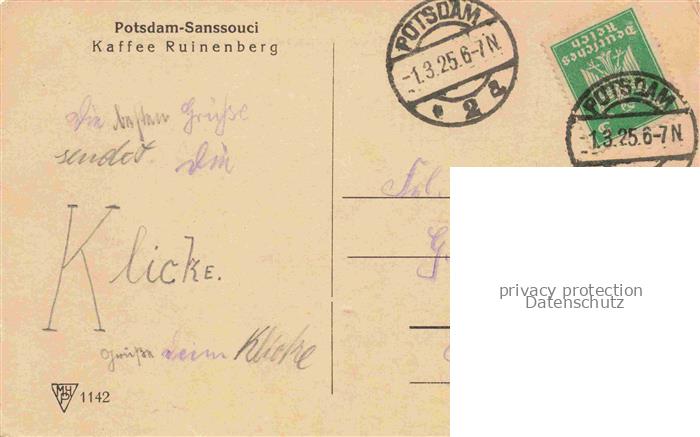 Potsdam-Sanssouci
Kaffee Ruinenberg
POTSDAM
-1.3.25.6-7N.
* 2 a
Deutsches
Reich
5
POTSDAM
-1.3.25.6-7N
Die besten Grüße
sendet Die
Klicke.
Grüße deine Klicke
Frl.
G
MHP 1142
privacy protection
Datenschutz